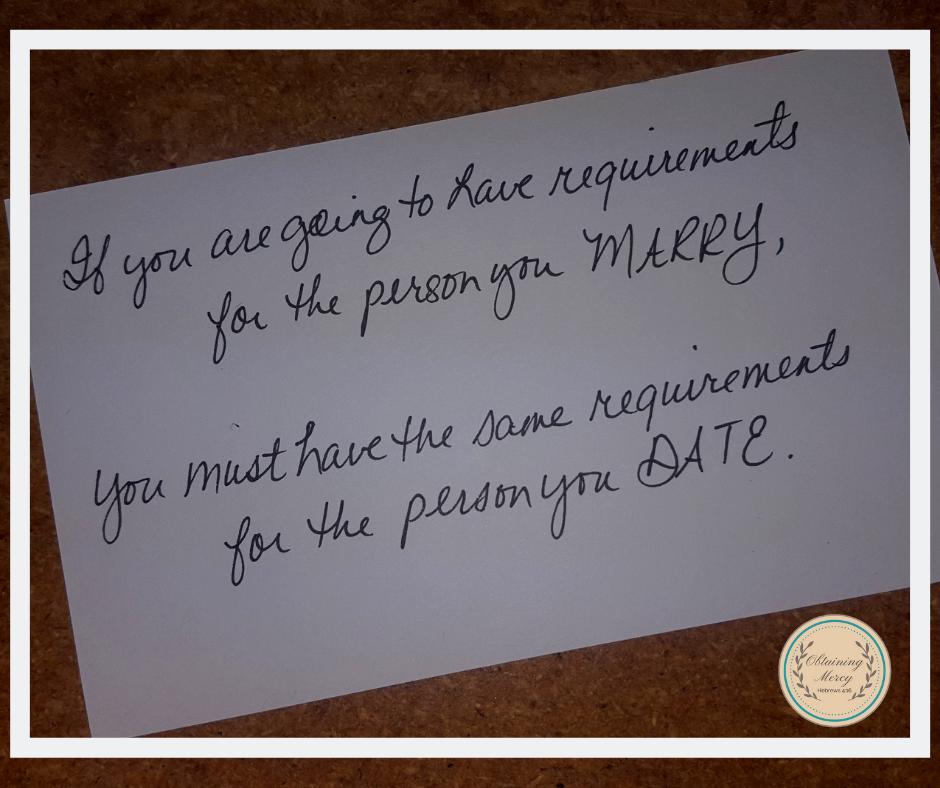 If you are going to have requirements
for the person you MARRY,
you must have the same requirements
for the person you DATE.
Obtaining
Mercy
Hebrews 4:16